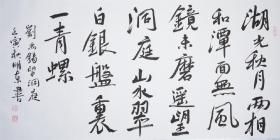 湖光秋月两相
和潭面無風
鏡未磨遥望
洞庭山水翠
白銀盤裏
一青螺
劉禹錫望洞庭